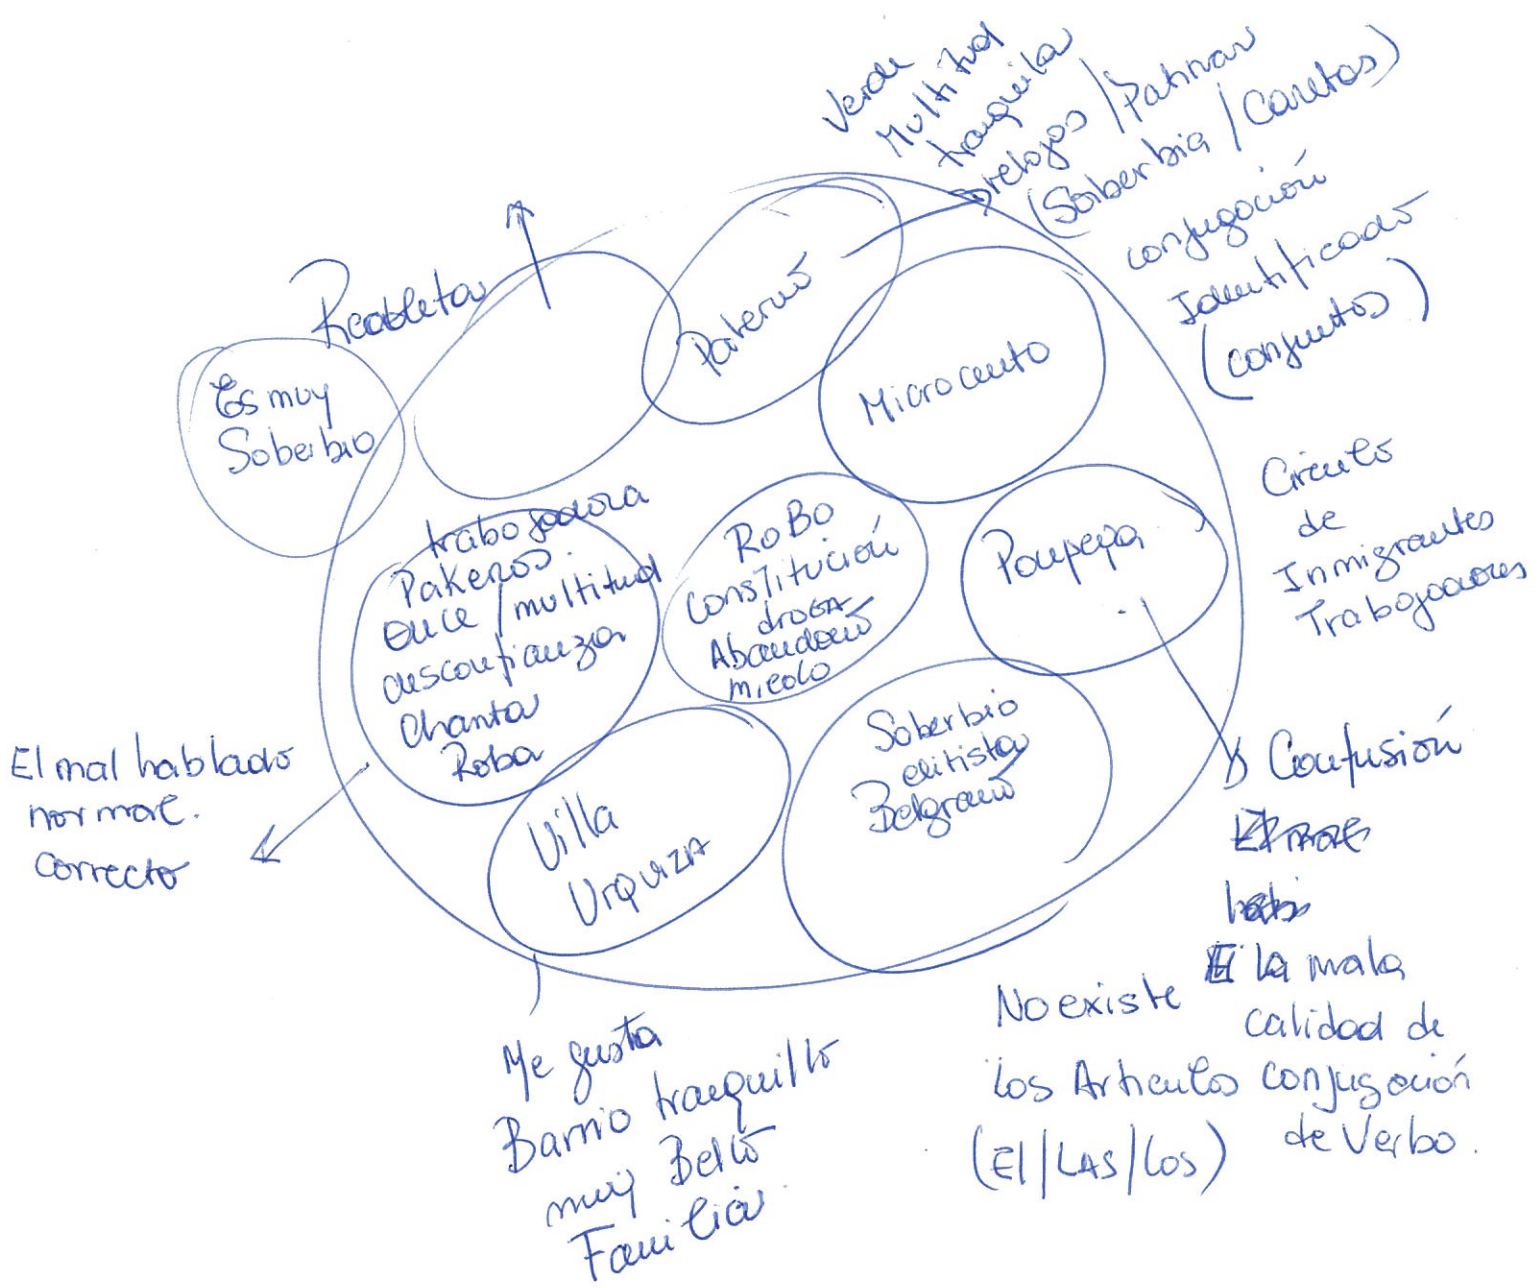 Verde
Multitud
tranquila
relojos / Patinar
(Soberbia / Caretas)
conjugación
Identificado
(conjuntos)
Recoleta
Palermo
Microcento
Es muy
Soberbio
trabajadora
Pakeros.
Once / multitud
desconfianza
Chanta
Roba
RoBo
Constitución
droGA
Abandono
miedo
Pompeya
Circulo
de
Inmigrantes
Trabajadores
Soberbio
elitista
Belgrano
Villa
UrquizA
El mal hablado
normal.
correcto
Confusión
No existe
los Articulos
(El/LAS/Los)
la mala
calidad de
conjugación
de Verbo.
Me gusta
Barrio tranquillo
muy Bello
Familia